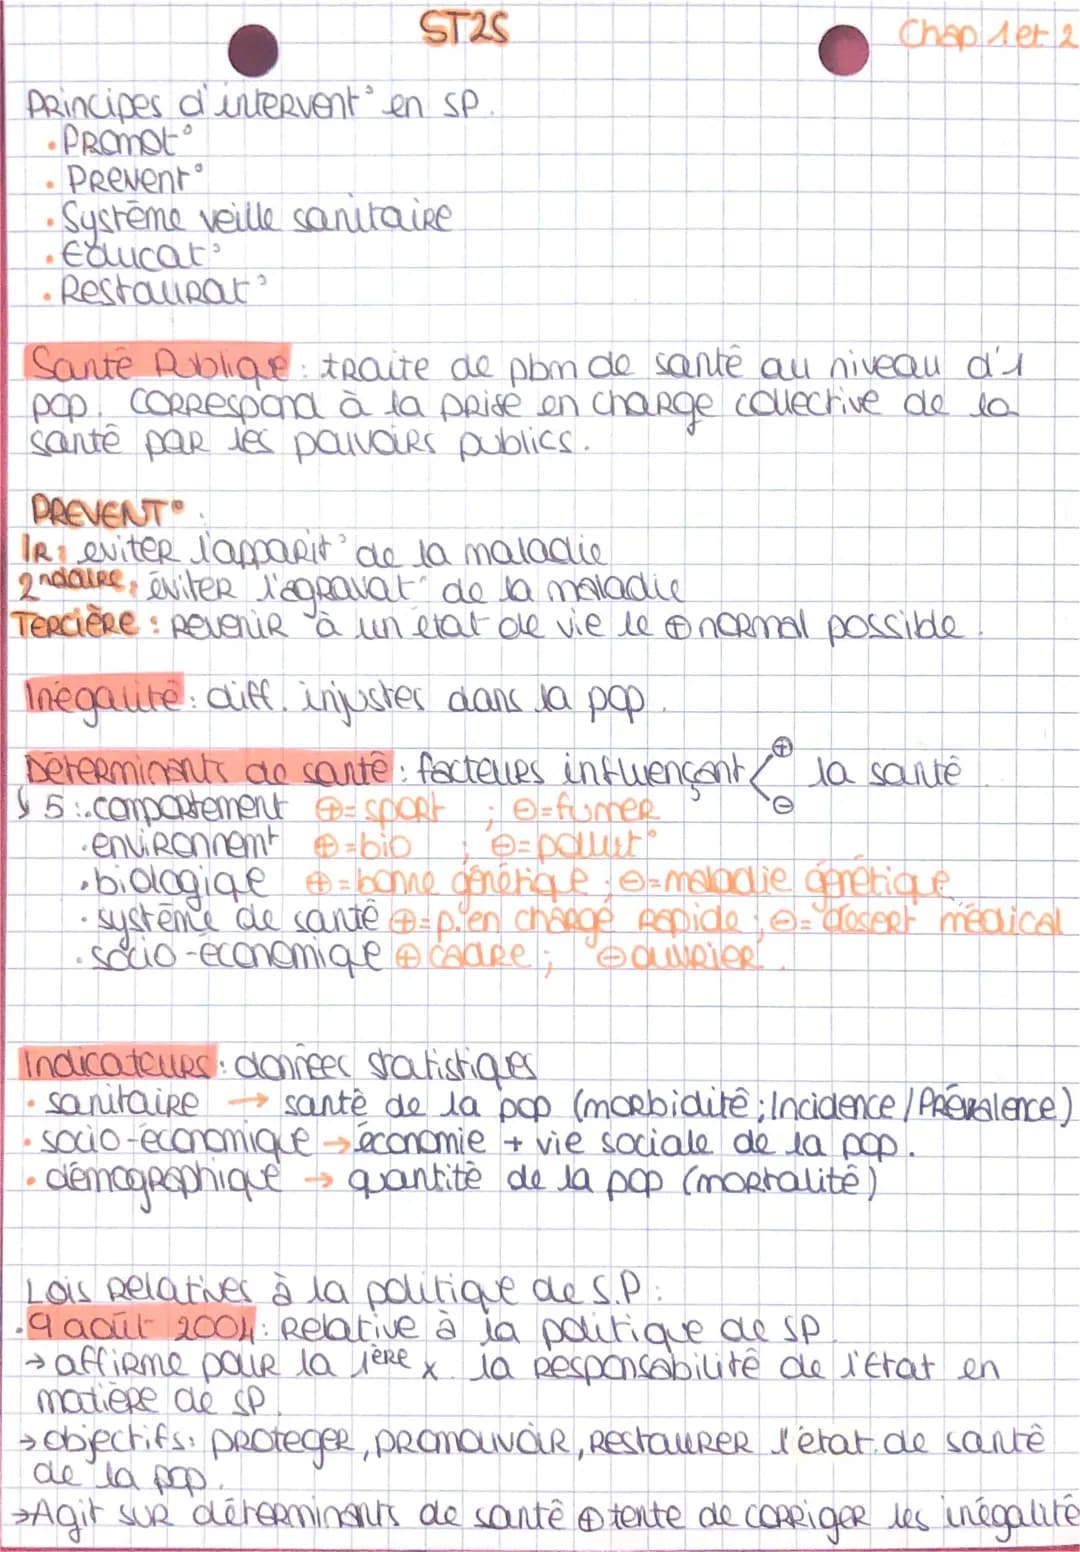 ST2S
Chap 1 et 2
Principes d'intervent° en SP.
• Promot°
• Prevent°
• Système veille sanitaire
• Educat°
• Restaurat°
Santé Publique : traite de pbm de santé au niveau d'1
pop. Correspond à la prise en charge collective de la
santé par les pouvoirs publics.
PREVENT° :
IR : eviter l'apparit° de la maladie
2ndaire : éviter l'agravat° de la maladie
Tercière : Revenir à un état de vie le ⊕ normal possible.
Inégalité : diff. injustes dans la pop.
Déterminants de santé : facteurs influençant < ⊕ ⊖ la santé.
↳ 5 : • comportement ⊕ = sport ; ⊖ = fumer
• environnemt ⊕ = bio ; ⊖ = pollut°
• biologique ⊕ = bonne génétique ; ⊖ = maladie génétique
• système de santé ⊕ = p. en charge rapide ; ⊖ = désert médical
• socio-économique ⊕ cadre ; ⊖ ouvrier.
Indicateurs : données statistiques
• sanitaire → santé de la pop (morbidité ; Incidence / Prévalence)
• socio-économique → économie + vie sociale de la pop.
• démographique → quantité de la pop (mortalité)
Lois Relatives à la politique de S.P :
• 9 août 2004 : Relative à la politique de SP.
→ affirme pour la 1ère x la responsabilité de l'Etat en
matière de SP.
→ objectifs : proteger, promouvoir, restaurer l'état de santé
de la pop.
→ Agit sur déterminants de santé ⊕ tente de corriger les inégalité